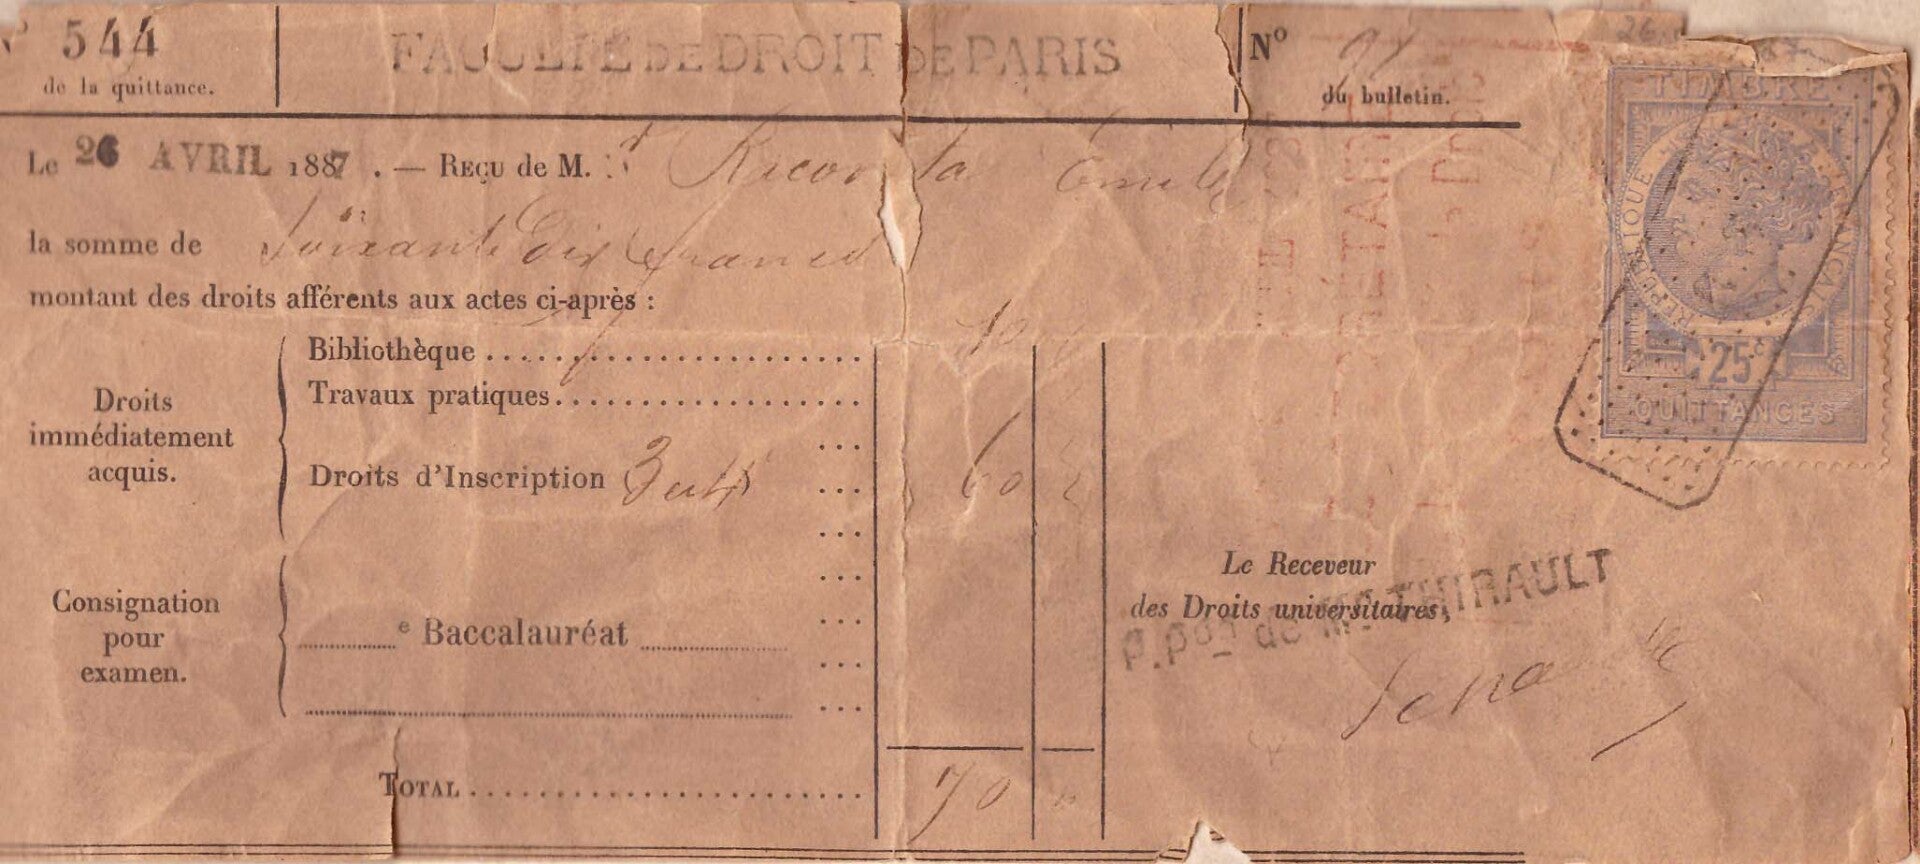 N° 544
de la quittance.
FACULTÉ DE DROIT DE PARIS
N° 97
du bulletin.
Le 26 AVRIL 1887. — REÇU de M. Emile
la somme de Soixante dix francs
montant des droits afférents aux actes ci-après :
Droits immédiatement acquis.
Bibliothèque 10
Travaux pratiques
Droits d'Inscription 60
Consignation pour examen.
e Baccalauréat
TOTAL 70 "
Le Receveur
des Droits universitaires,
P. Pon de Mr THIRAULT
TIMBRE
RÉPUBLIQUE FRANÇAISE
25c
QUITTANCES
SECRÉTARIAT